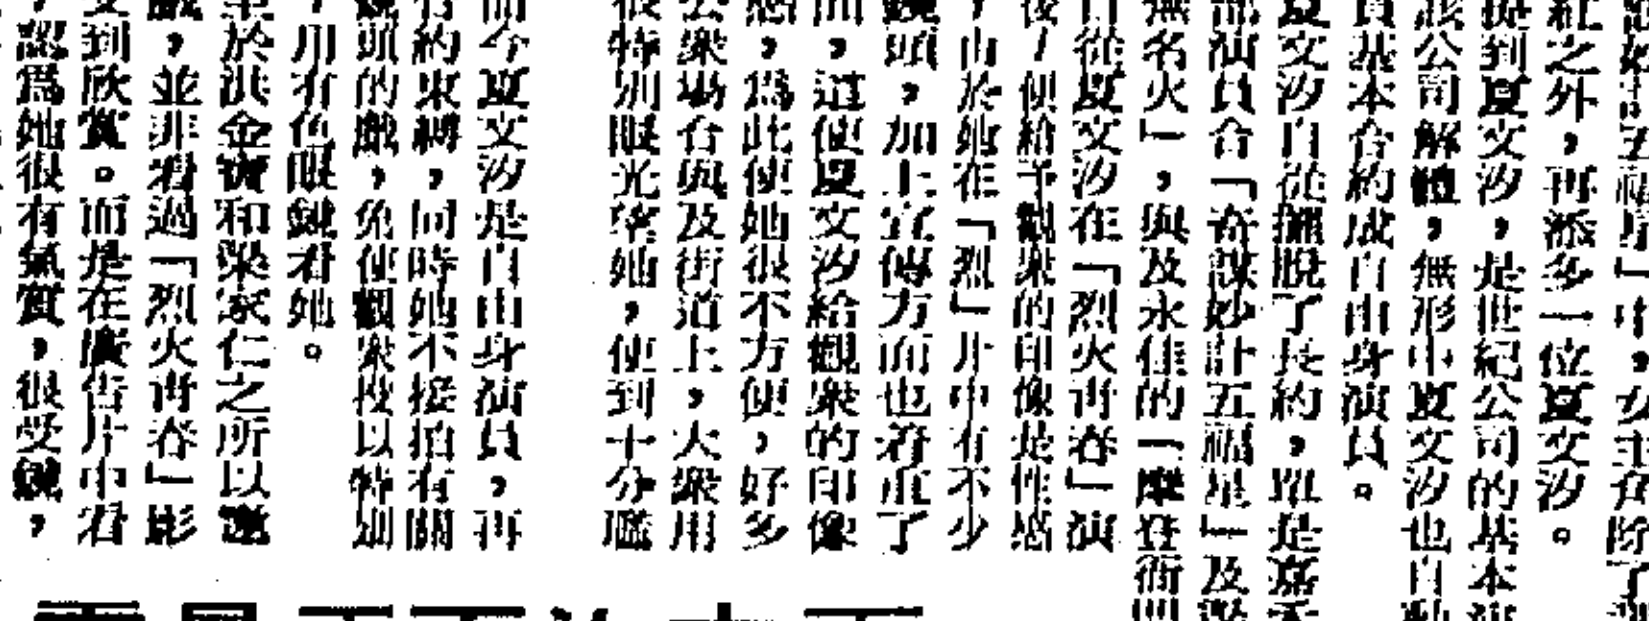 五福星」中,女主角除了
紅之外,再添多一位夏文汐。
提到夏文汐,是世紀公司的基本演
該公司解體,無形中夏文汐也自動
員基本合約成自由身演員。
夏文汐自從擺脫了長約,單是嘉禾
部演員合「奇謀妙計五福星」及
無名火」,與及永佳的「摩登衙門
自從夏文汐在「烈火青春」演
後,便給予觀衆的印像是性感
,由於她在「烈」片中有不少
鏡頭,加上宣傳方面也着重了
面,這便夏文汐給觀衆的印像
惑,爲此使她很不方便,好多
公衆場合與及街道上,大衆用
很特別眼光望她,使到十分尷
而今夏文汐是自由身演員,再
有約束縛,同時她不接拍有關
鏡頭的戲,免使觀衆投以特別
,用有色眼鏡看她。
至於洪金寶和梁家仁之所以邀
戲,並非看過「烈火青春」影
受到欣賞。而是在廣告片中看
,認爲她很有氣質,很受鏡,